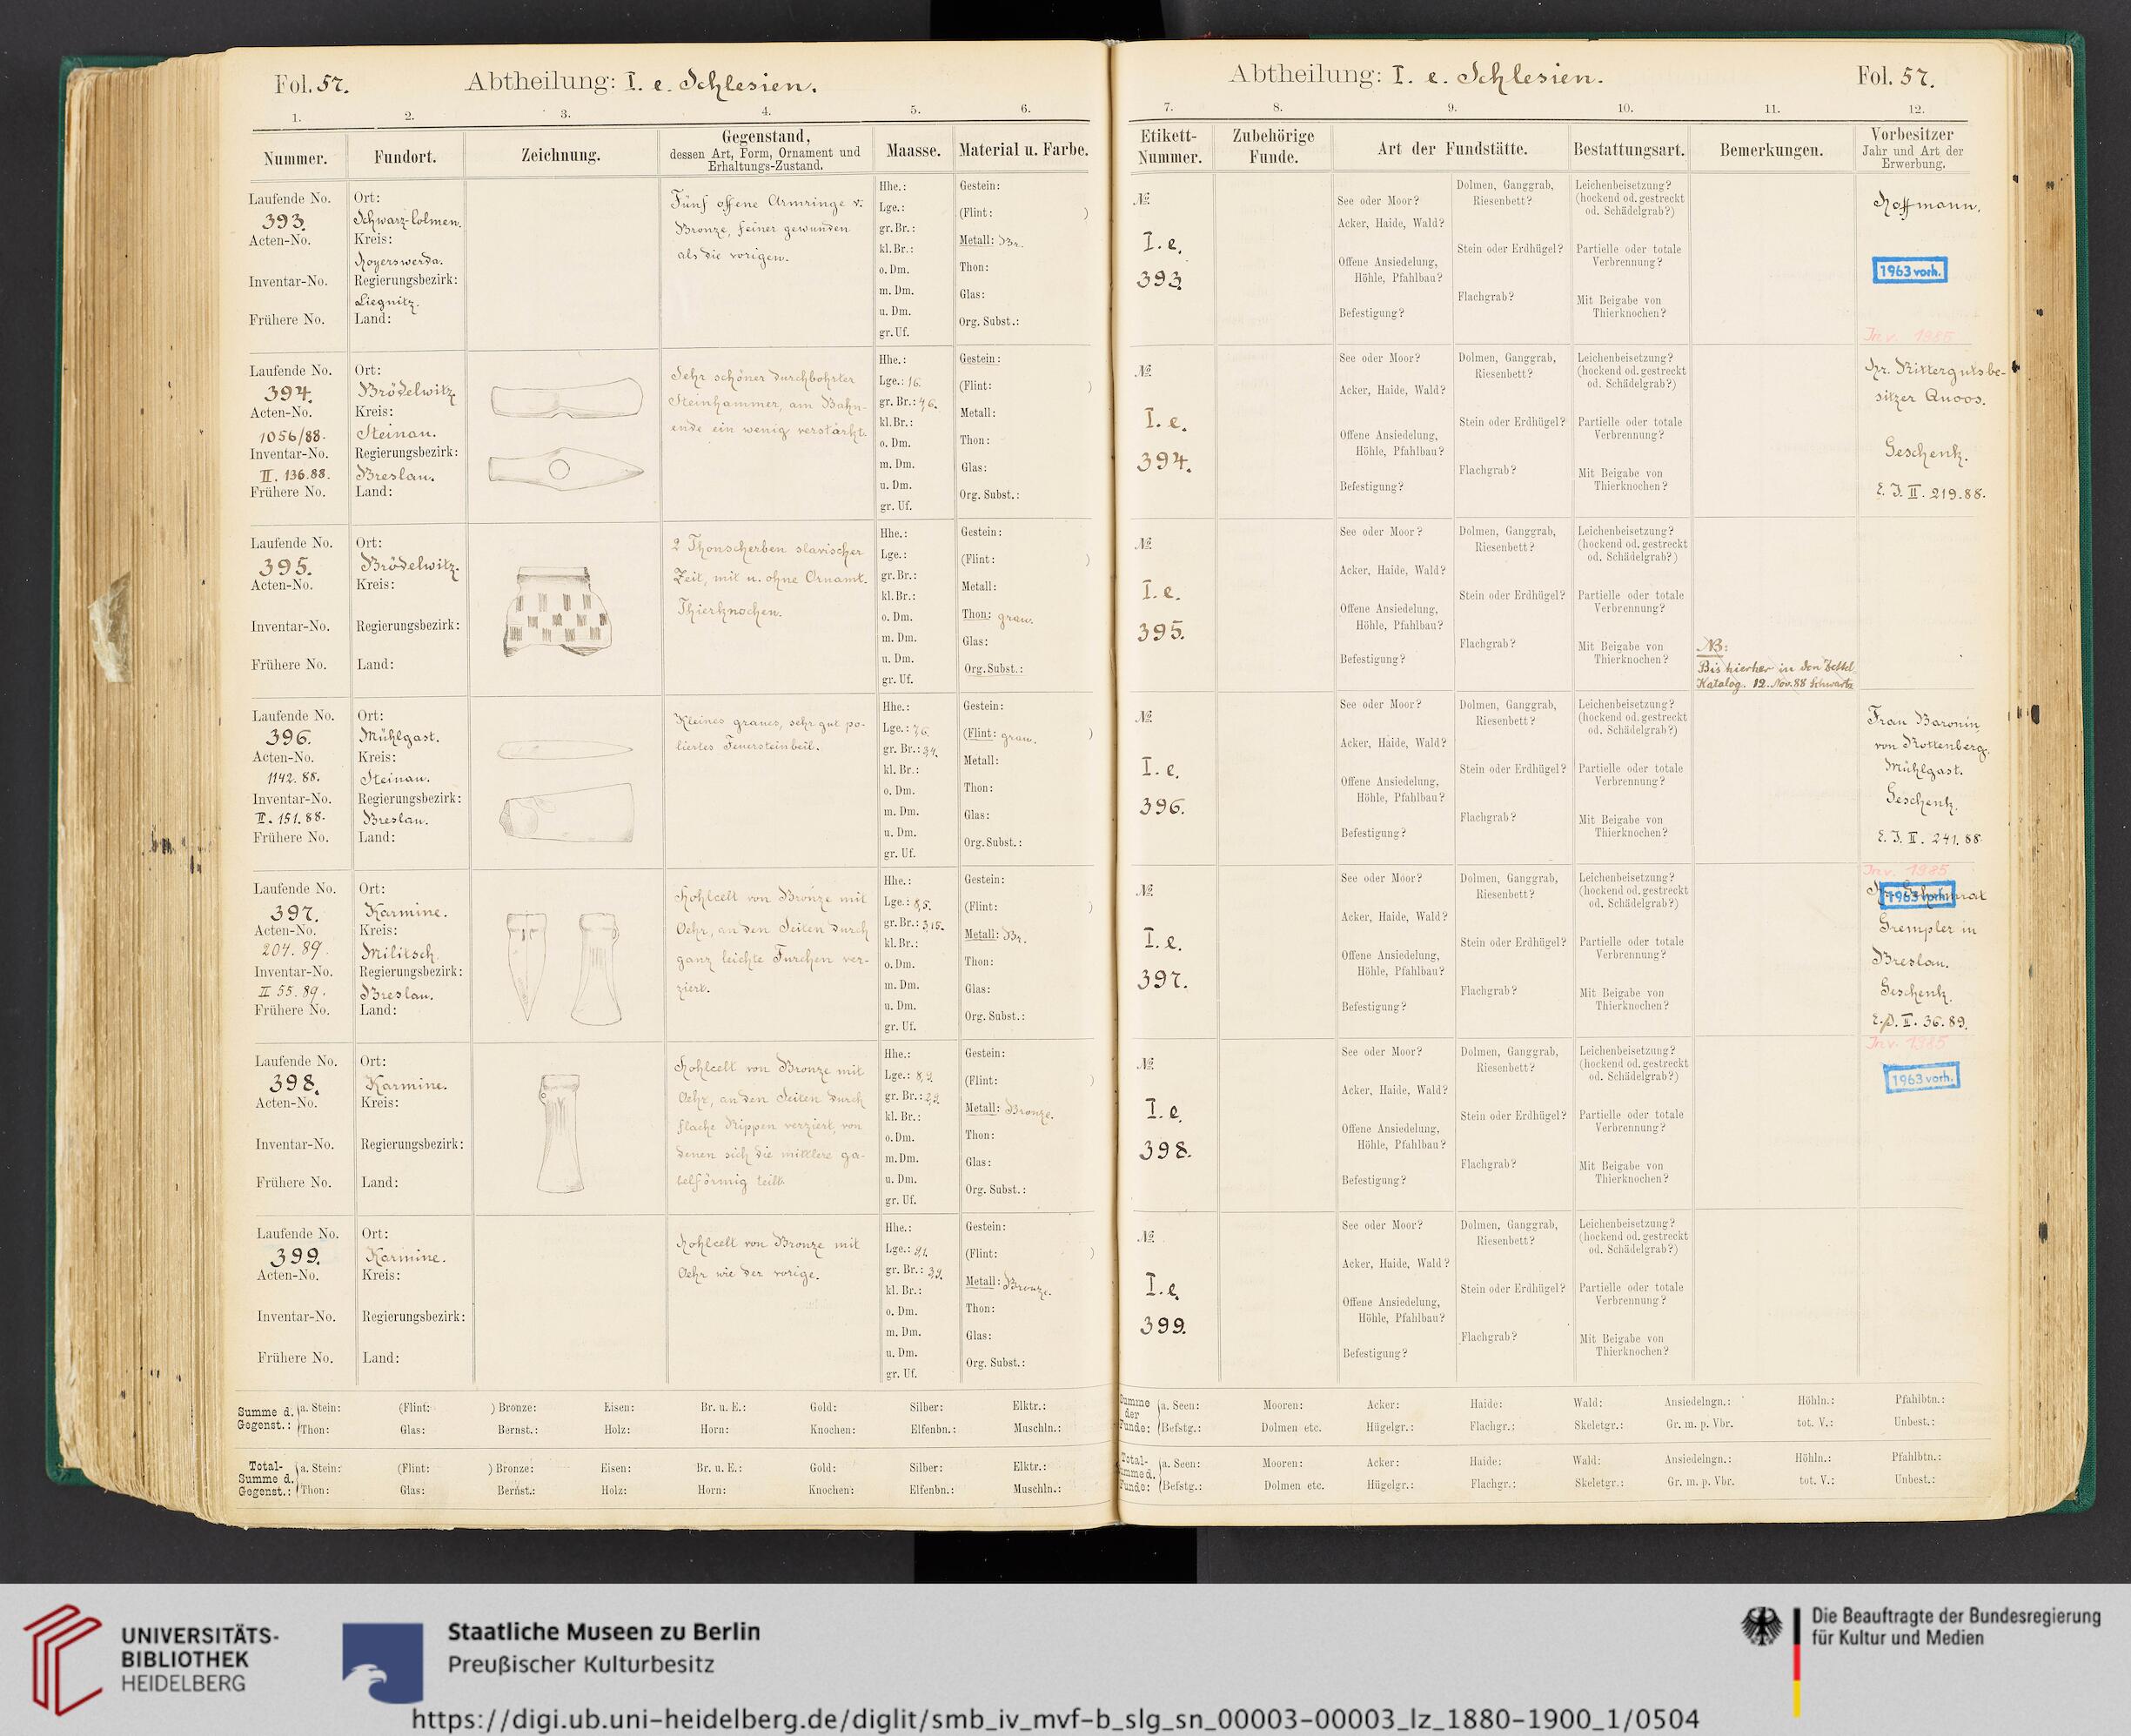 Fol. 57.
Abtheilung: I. e. Schlesien.
1. 2. 3. 4. 5. 6.
Nummer.
Fundort.
Zeichnung.
Gegenstand,
dessen Art, Form, Ornament und
Erhaltungs-Zustand.
Maasse.
Material u. Farbe.
Laufende No.
393.
Acten-No.
Inventar-No.
Frühere No.
Ort:
Schwarz-Colmen.
Kreis:
Hoyerswerda.
Regierungsbezirk:
Liegnitz.
Land:
Fünf offene Armringe v.
Bronze, feiner gewunden
als die vorigen.
Hhe.:
Lge.:
gr. Br.:
kl. Br.:
o. Dm.
m. Dm.
u. Dm.
gr. Uf.
Gestein:
(Flint: )
Metall: Br.
Thon:
Glas:
Org. Subst.:
Laufende No.
394.
Acten-No.
1056/88.
Inventar-No.
II. 136.88.
Frühere No.
Ort:
Brödelwitz
Kreis:
Steinau.
Regierungsbezirk:
Breslau.
Land:
Sehr schöner durchbohrter
Steinhammer, am Bahn-
ende ein wenig verstärkt.
Hhe.:
Lge.: 16.
gr. Br.: 4,6.
kl. Br.:
o. Dm.
m. Dm.
u. Dm.
gr. Uf.
Gestein:
(Flint: )
Metall:
Thon:
Glas:
Org. Subst.:
Laufende No.
395.
Acten-No.
Inventar-No.
Frühere No.
Ort:
Brödelwitz.
Kreis:
Regierungsbezirk:
Land:
2 Thonscherben slavischer
Zeit, mit u. ohne Ornamt.
Thierknochen.
Hhe.:
Lge.:
gr. Br.:
kl. Br.:
o. Dm.
m. Dm.
u. Dm.
gr. Uf.
Gestein:
(Flint: )
Metall:
Thon: grau.
Glas:
Org. Subst.:
Laufende No.
396.
Acten-No.
1142. 88.
Inventar-No.
II. 151. 88.
Frühere No.
Ort:
Mühlgast.
Kreis:
Steinau.
Regierungsbezirk:
Breslau.
Land:
Kleines graues, sehr gut po-
liertes Feuersteinbeil.
Hhe.:
Lge.: 7,6.
gr. Br.: 3,4.
kl. Br.:
o. Dm.
m. Dm.
u. Dm.
gr. Uf.
Gestein:
(Flint: grau. )
Metall:
Thon:
Glas:
Org. Subst.:
Laufende No.
397.
Acten-No.
204. 89.
Inventar-No.
II 55. 89.
Frühere No.
Ort:
Karmine.
Kreis:
Militsch
Regierungsbezirk:
Breslau.
Land:
Hohlcelt von Bronze mit
Oehr, an den Seiten durch
ganz leichte Furchen ver-
ziert.
Hhe.:
Lge.: 8,5.
gr. Br.: 3,15.
kl. Br.:
o. Dm.
m. Dm.
u. Dm.
gr. Uf.
Gestein:
(Flint: )
Metall: Br.
Thon:
Glas:
Org. Subst.:
Laufende No.
398.
Acten-No.
Inventar-No.
Frühere No.
Ort:
Karmine.
Kreis:
Regierungsbezirk:
Land:
Hohlcelt von Bronze mit
Oehr, an den Seiten durch
flache Rippen verziert, von
denen sich die mittlere ga-
belförmig teilt.
Hhe.:
Lge.: 8,9.
gr. Br.: 2,9.
kl. Br.:
o. Dm.
m. Dm.
u. Dm.
gr. Uf.
Gestein:
(Flint: )
Metall: Bronze.
Thon:
Glas:
Org. Subst.:
Laufende No.
399.
Acten-No.
Inventar-No.
Frühere No.
Ort:
Karmine.
Kreis:
Regierungsbezirk:
Land:
Hohlcelt von Bronze mit
Oehr wie der vorige.
Hhe.:
Lge.: 9,1.
gr. Br.: 3,9.
kl. Br.:
o. Dm.
m. Dm.
u. Dm.
gr. Uf.
Gestein:
(Flint: )
Metall: Bronze.
Thon:
Glas:
Org. Subst.:
Summe d. Gegenst.: a. Stein: (Flint: ) Bronze: Eisen: Br. u. E.: Gold: Silber: Elktr.:
Thon: Glas: Bernst.: Holz: Horn: Knochen: Elfenbn.: Muschln.:
Total-Summe d. Gegenst.: a. Stein: (Flint: ) Bronze: Eisen: Br. u. E.: Gold: Silber: Elktr.:
Thon: Glas: Bernst.: Holz: Horn: Knochen: Elfenbn.: Muschln.:
Abtheilung: I. e. Schlesien.
Fol. 57.
7. 8. 9. 10. 11. 12.
Etikett-
Nummer.
Zubehörige
Funde.
Art der Fundstätte.
Bestattungsart.
Bemerkungen.
Vorbesitzer
Jahr und Art der
Erwerbung.
№
I. e.
393.
See oder Moor?
Acker, Haide, Wald?
Offene Ansiedelung,
Höhle, Pfahlbau?
Befestigung?
Dolmen, Ganggrab,
Riesenbett?
Stein oder Erdhügel?
Flachgrab?
Leichenbeisetzung?
(hockend od. gestreckt
od. Schädelgrab?)
Partielle oder totale
Verbrennung?
Mit Beigabe von
Thierknochen?
Hoffmann.
1963 vorh.
Inv. 1985
№
I. e.
394.
See oder Moor?
Acker, Haide, Wald?
Offene Ansiedelung,
Höhle, Pfahlbau?
Befestigung?
Dolmen, Ganggrab,
Riesenbett?
Stein oder Erdhügel?
Flachgrab?
Leichenbeisetzung?
(hockend od. gestreckt
od. Schädelgrab?)
Partielle oder totale
Verbrennung?
Mit Beigabe von
Thierknochen?
Hr. Rittergutsbe-
sitzer
Geschenk.
E. J. II. 219. 88.
№
I. e.
395.
See oder Moor?
Acker, Haide, Wald?
Offene Ansiedelung,
Höhle, Pfahlbau?
Befestigung?
Dolmen, Ganggrab,
Riesenbett?
Stein oder Erdhügel?
Flachgrab?
Leichenbeisetzung?
(hockend od. gestreckt
od. Schädelgrab?)
Partielle oder totale
Verbrennung?
Mit Beigabe von
Thierknochen?
NB:
Bis hierher in den Zettel
Katalog. 12. Nov. 88 Schwartz
№
I. e.
396.
See oder Moor?
Acker, Haide, Wald?
Offene Ansiedelung,
Höhle, Pfahlbau?
Befestigung?
Dolmen, Ganggrab,
Riesenbett?
Stein oder Erdhügel?
Flachgrab?
Leichenbeisetzung?
(hockend od. gestreckt
od. Schädelgrab?)
Partielle oder totale
Verbrennung?
Mit Beigabe von
Thierknochen?
Frau Baronin
von Rottenberg,
Mühlgast.
Geschenk.
E. J. II. 241. 88
Inv. 1985
№
I. e.
397.
See oder Moor?
Acker, Haide, Wald?
Offene Ansiedelung,
Höhle, Pfahlbau?
Befestigung?
Dolmen, Ganggrab,
Riesenbett?
Stein oder Erdhügel?
Flachgrab?
Leichenbeisetzung?
(hockend od. gestreckt
od. Schädelgrab?)
Partielle oder totale
Verbrennung?
Mit Beigabe von
Thierknochen?
1963 vorh.
Grempler in
Breslau.
Geschenk.
E. J. II. 36. 89.
Inv. 1985
№
I. e.
398.
See oder Moor?
Acker, Haide, Wald?
Offene Ansiedelung,
Höhle, Pfahlbau?
Befestigung?
Dolmen, Ganggrab,
Riesenbett?
Stein oder Erdhügel?
Flachgrab?
Leichenbeisetzung?
(hockend od. gestreckt
od. Schädelgrab?)
Partielle oder totale
Verbrennung?
Mit Beigabe von
Thierknochen?
1963 vorh.
№
I. e.
399.
See oder Moor?
Acker, Haide, Wald?
Offene Ansiedelung,
Höhle, Pfahlbau?
Befestigung?
Dolmen, Ganggrab,
Riesenbett?
Stein oder Erdhügel?
Flachgrab?
Leichenbeisetzung?
(hockend od. gestreckt
od. Schädelgrab?)
Partielle oder totale
Verbrennung?
Mit Beigabe von
Thierknochen?
Summe der Funde: a. Seen: Mooren: Acker: Haide: Wald: Ansiedelngn.: Höhln.: Pfahlbtn.:
Befstg.: Dolmen etc. Hügelgr.: Flachgr.: Skeletgr.: Gr. m. p. Vbr. tot. V.: Unbest.:
Total-Summe d. Funde: a. Seen: Mooren: Acker: Haide: Wald: Ansiedelngn.: Höhln.: Pfahlbtn.:
Befstg.: Dolmen etc. Hügelgr.: Flachgr.: Skeletgr.: Gr. m. p. Vbr. tot. V.: Unbest.:
UNIVERSITÄTS-
BIBLIOTHEK
HEIDELBERG
Staatliche Museen zu Berlin
Preußischer Kulturbesitz
Die Beauftragte der Bundesregierung
für Kultur und Medien
https://digi.ub.uni-heidelberg.de/diglit/smb_iv_mvf-b_slg_sn_00003-00003_lz_1880-1900_1/0504